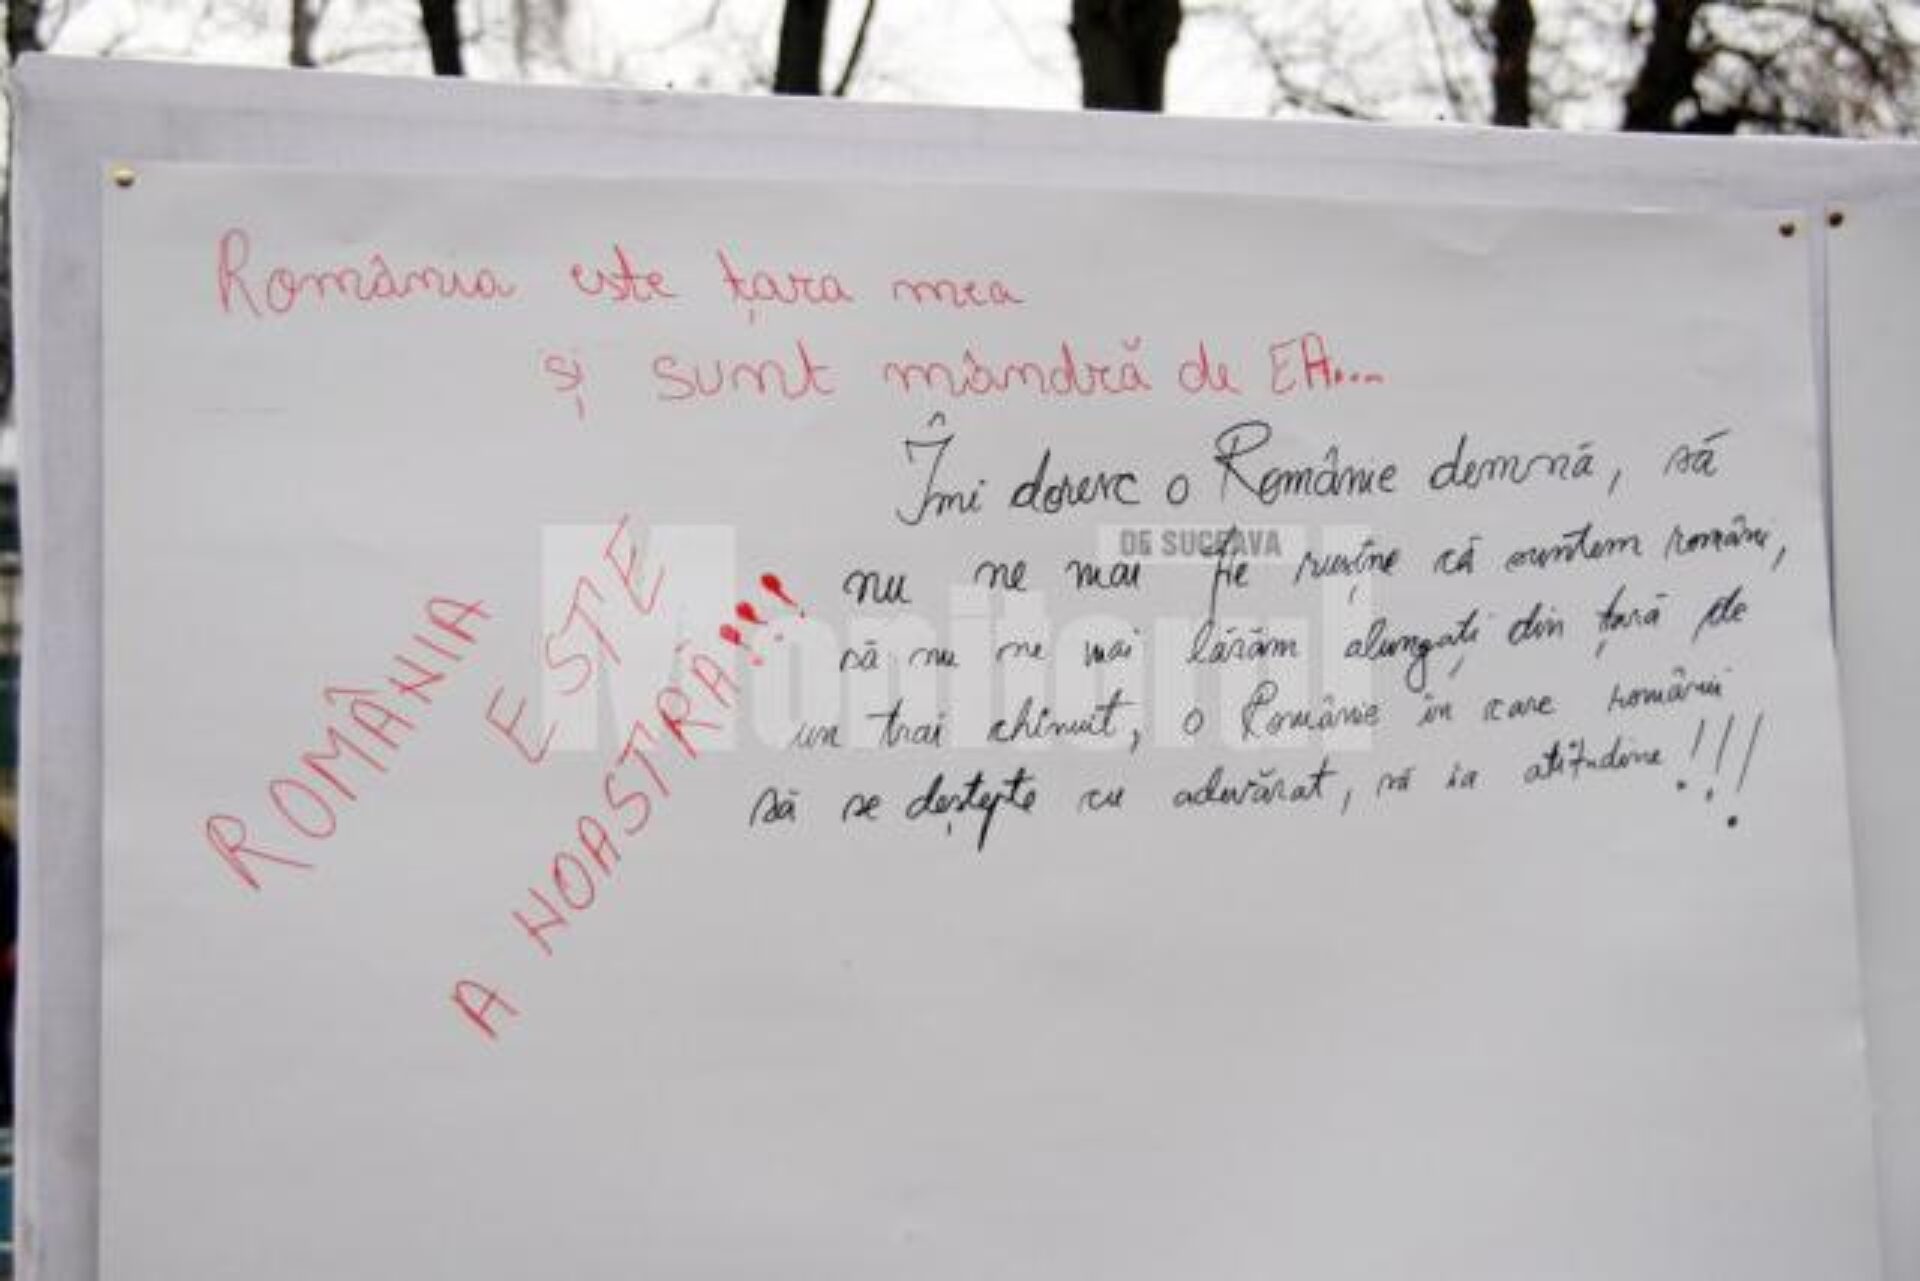 România este țara mea
și sunt mândră de EA....
Îmi doresc o Românie demnă, să
nu ne mai fie rușine că suntem români,
să nu ne mai lăsăm alungați din țară de
un trai chinuit, o Românie în care românii
să se deștepte cu adevărat, să ia atitudine!!!
ROMÂNIA
ESTE
A NOASTRĂ!!!
DE SUCEAVA
Monitorul